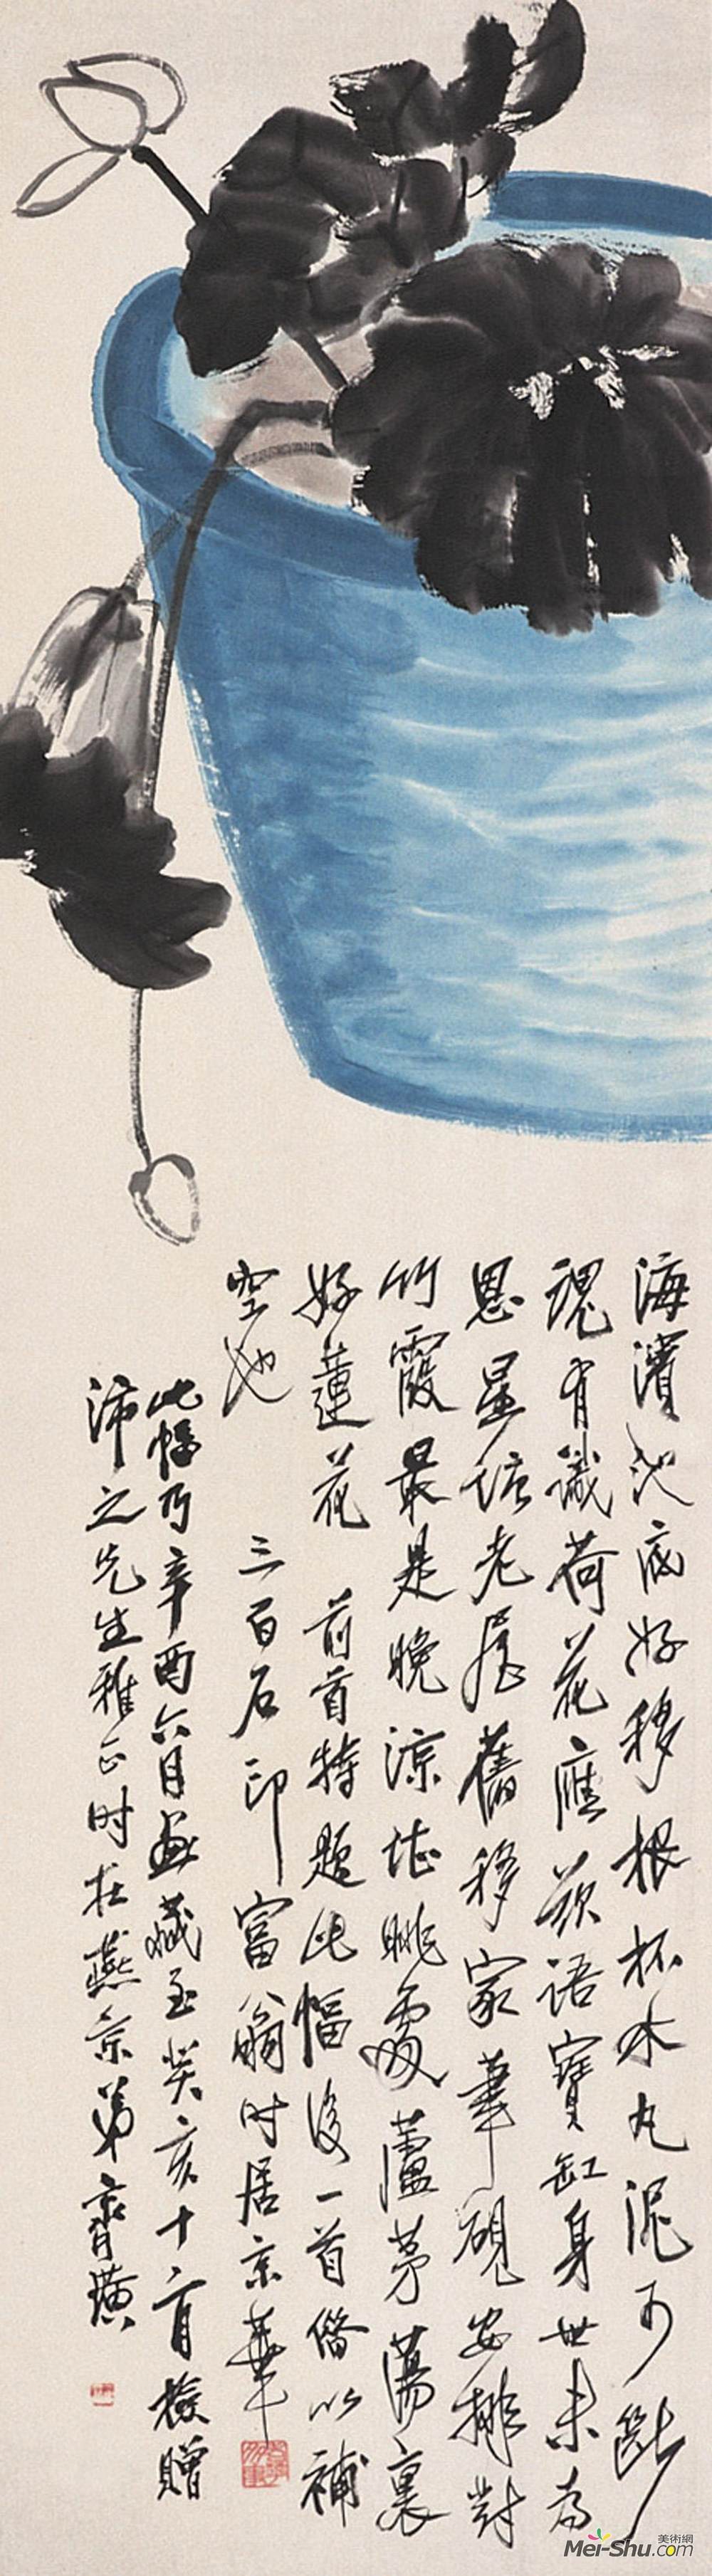 海濱池底好移根杯水丸泥可斷
魂有識荷花應欲語寶缸身世未為
恩星塘老屋舊移家華硯安排對
竹霞最是晚涼堪眺處蘆茅蕩裏
好蓮花　前首特題此幅後一首借以補
空池　三百石印富翁时居京華
此幅乃辛酉六月画藏至癸亥十二月檢贈
沛之先生雅正时在燕京弟齊璜
美術網
Mei-Shu.com